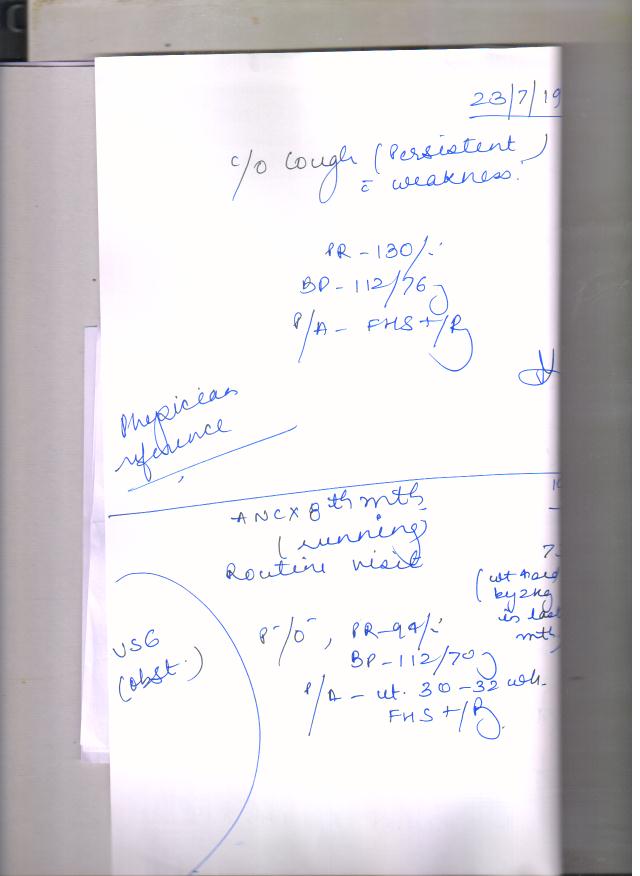 23/7/19
c/o Cough (Persistent)
c̄ weakness.
PR - 130/.
BP - 112/76
P/A - FHS +/R
Physician
reference
ANC x 8th mth
(running)
Routine visit
7.
(wt
by 2kg
in last
mth)
USG
(obst.)
P-/O-, PR - 94/.
BP - 112/70
P/A - ut. 30-32 wk.
FHS +/R